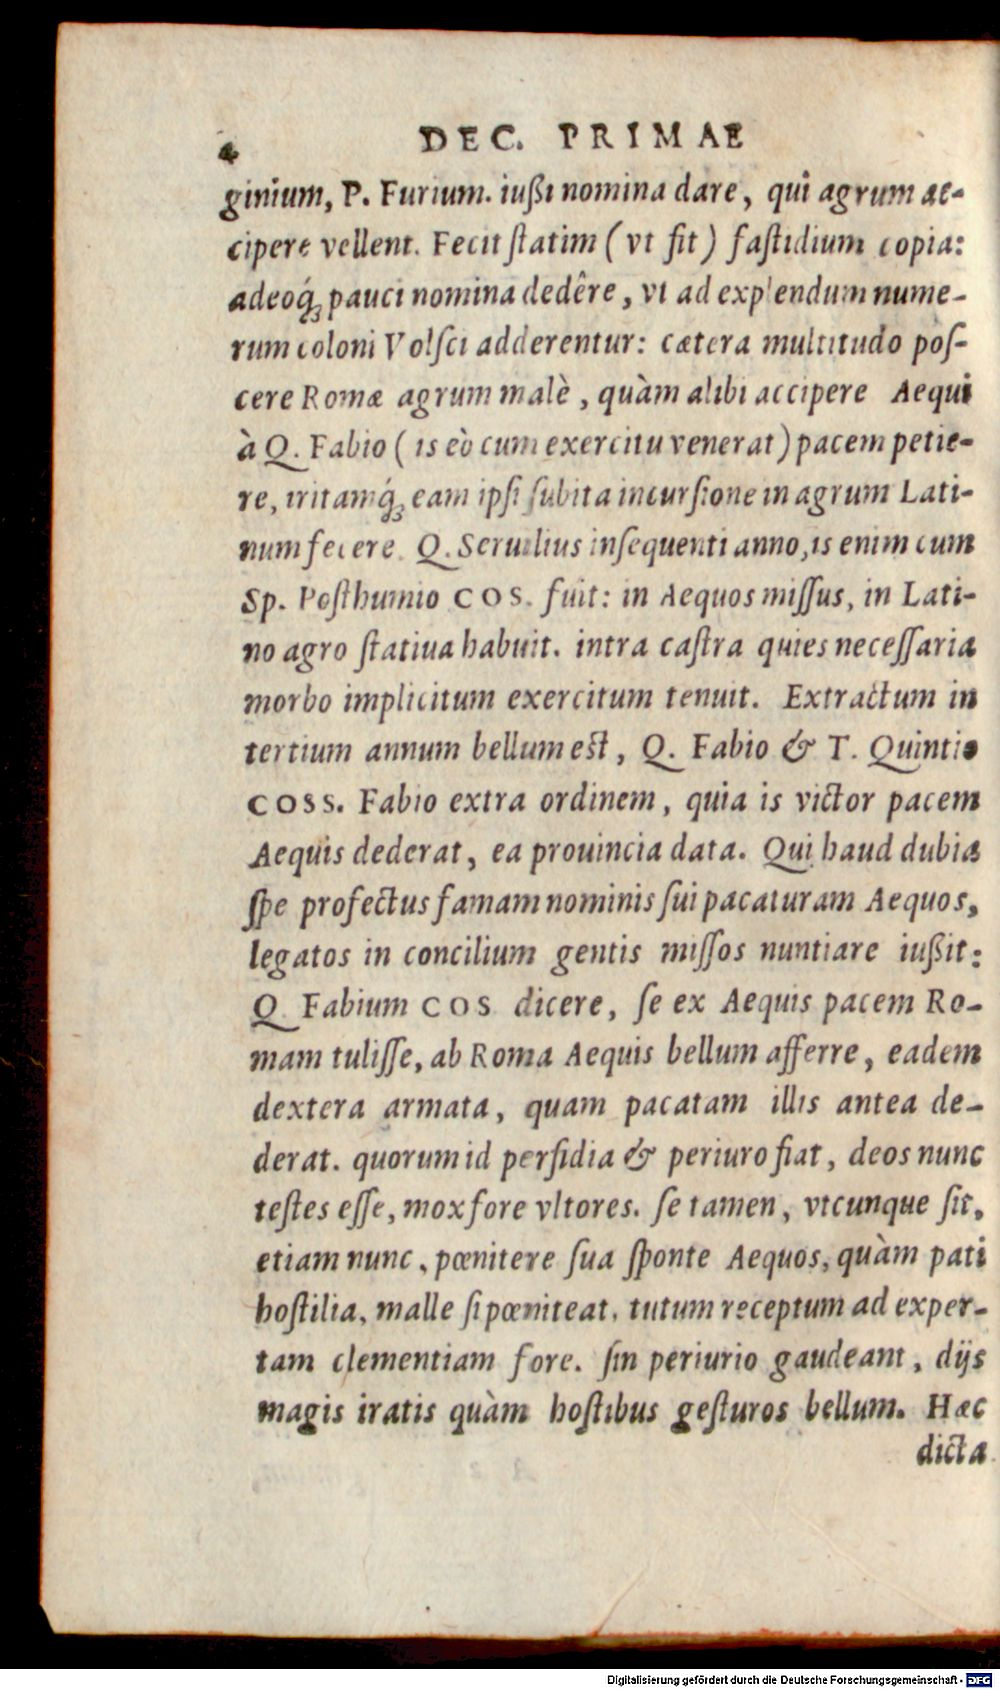 4 DEC. PRIMAE
ginium, P. Furium. iußi nomina dare, qui agrum ac-
cipere vellent. Fecit ſtatim (vt fit) faſtidium copia:
adeoq́ꝫ pauci nomina dedêre, vt ad explendum nume-
rum coloni Volſci adderentur: cætera multitudo poſ-
cere Romæ agrum malè, quàm alibi accipere Aequi
à Q. Fabio (is eò cum exercitu venerat) pacem petie-
re, iritamq́ꝫ eam ipſi ſubita incurſione in agrum Lati-
num fecere. Q. Seruilius inſequenti anno, is enim cum
Sp. Poſthumio COS. fuit: in Aequos miſſus, in Lati-
no agro ſtatiua habuit. intra caſtra quies neceſſaria
morbo implicitum exercitum tenuit. Extractum in
tertium annum bellum est, Q. Fabio & T. Quintio
COSS. Fabio extra ordinem, quia is victor pacem
Aequis dederat, ea prouincia data. Qui haud dubia
ſpe profectus famam nominis ſui pacaturam Aequos,
legatos in concilium gentis miſſos nuntiare iußit:
Q Fabium COS dicere, ſe ex Aequis pacem Ro-
mam tuliſſe, ab Roma Aequis bellum afferre, eadem
dextera armata, quam pacatam illis antea de-
derat. quorum id perfidia & periuro fiat, deos nunc
teſtes eſſe, mox fore vltores. ſe tamen, vtcunque ſit,
etiam nunc, pœnitere ſua ſponte Aequos, quàm pati
hoſtilia, malle ſi pœniteat, tutum receptum ad exper-
tam clementiam fore. ſin periurio gaudeant, dijs
magis iratis quàm hoſtibus geſturos bellum. Hæc
dicta
Digitalisierung gefördert durch die Deutsche Forschungsgemeinschaft - DFG